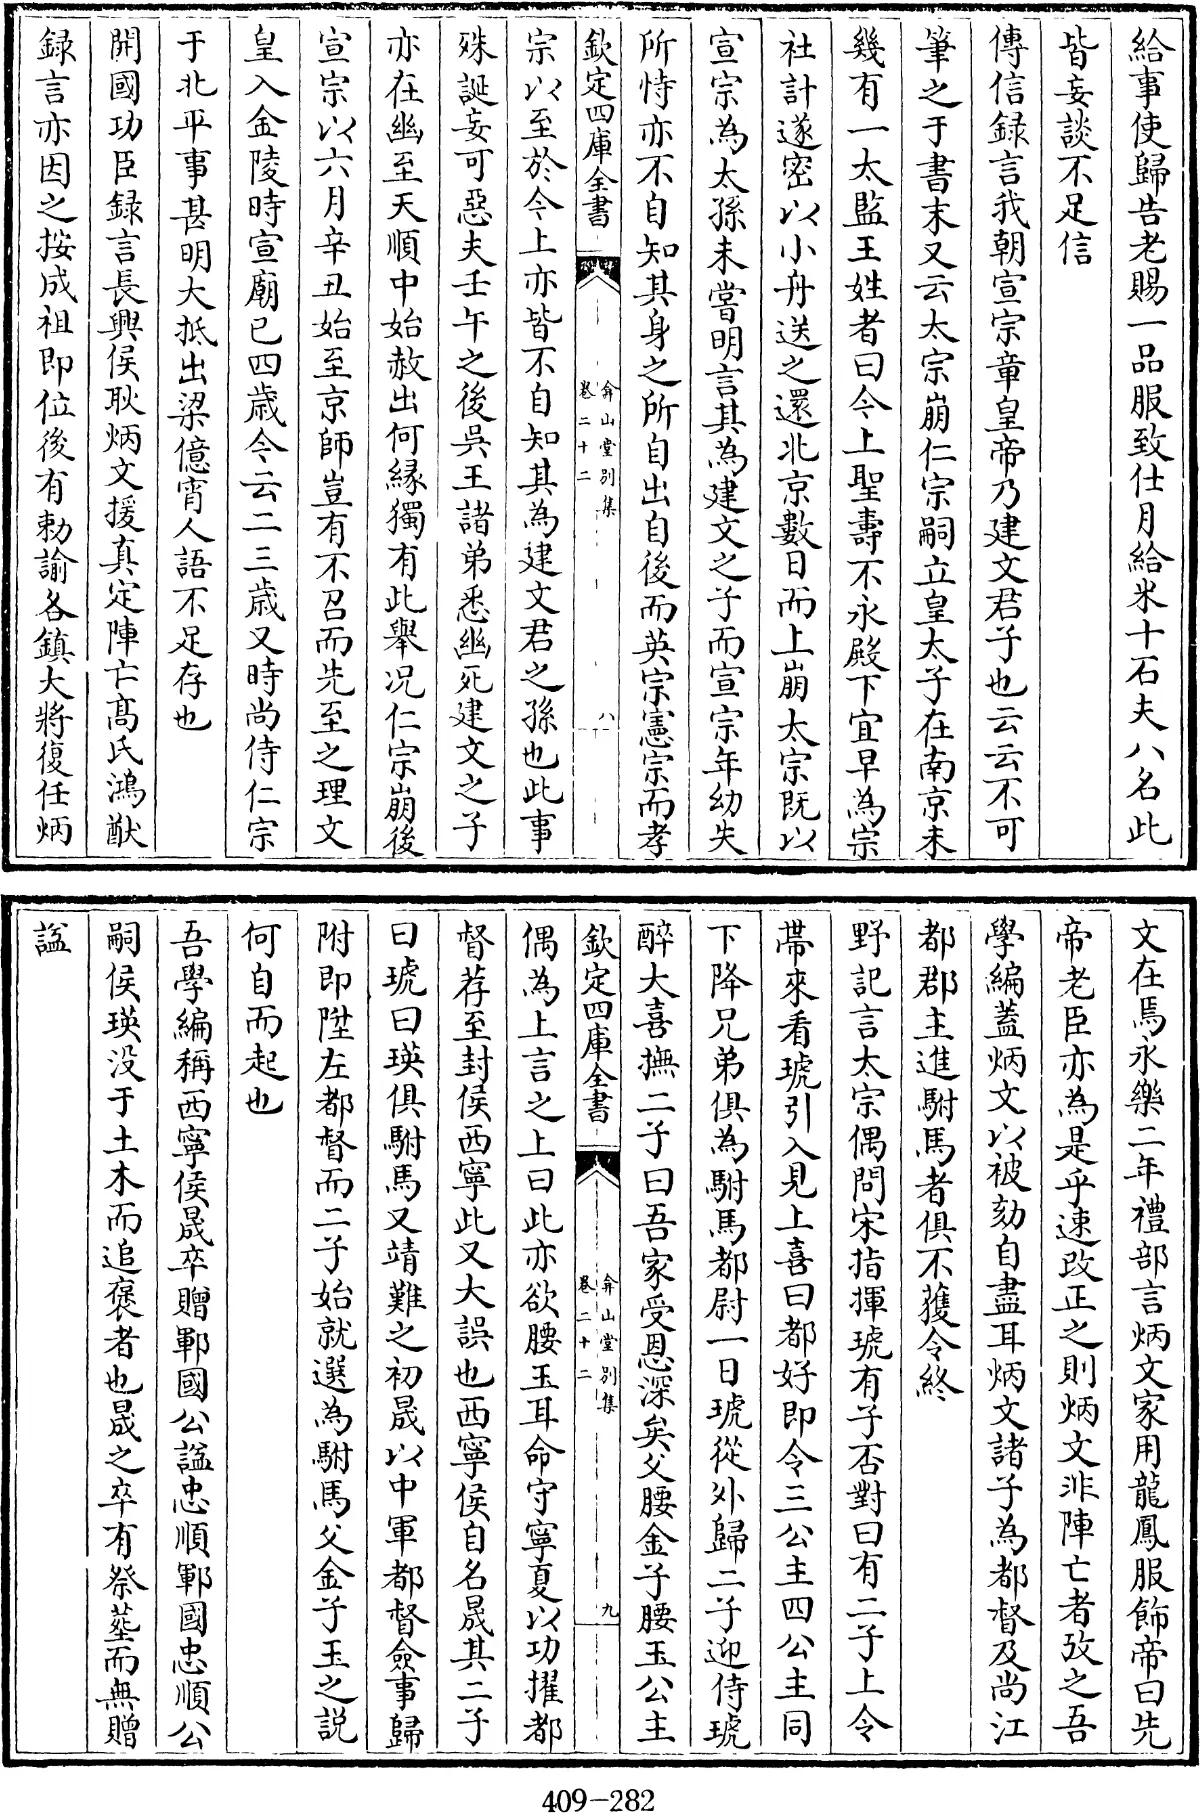 給事使歸告老賜一品服致仕月給米十石夫八名此
皆妄談不足信
傳信録言我朝宣宗章皇帝乃建文君子也云云不可
筆之于書末又云太宗崩仁宗嗣立皇太子在南京未
幾有一太監王姓者曰今上聖壽不永殿下宜早為宗
社計遂密以小舟送之還北京數日而上崩太宗既以
宣宗為太孫未嘗明言其為建文之子而宣宗年幼失
所恃亦不自知其身之所自出自後而英宗憲宗而孝
欽定四庫全書
弇山堂别集
卷二十二
八
宗以至於今上亦皆不自知其為建文君之孫也此事
殊誕妄可惡夫壬午之後吳王諸弟悉幽死建文之子
亦在幽至天順中始赦出何縁獨有此舉况仁宗崩後
宣宗以六月辛丑始至京師豈有不召而先至之理文
皇入金陵時宣廟已四歳今云二三歳又時尚侍仁宗
于北平事甚明大抵出梁億宵人語不足存也
開國功臣録言長興侯耿炳文援真定陣亡髙氏鴻猷
録言亦因之按成祖即位後有勅諭各鎮大將復任炳
文在焉永樂二年禮部言炳文家用龍鳳服飾帝曰先
帝老臣亦為是乎速改正之則炳文非陣亡者攷之吾
學編葢炳文以被劾自盡耳炳文諸子為都督及尚江
都郡主進駙馬者俱不獲令終
野記言太宗偶問宋指揮琥有子否對曰有二子上令
帶來看琥引入見上喜曰都好即令三公主四公主同
下降兄弟俱為駙馬都尉一日琥從外歸二子迎侍琥
醉大喜撫二子曰吾家受恩深矣父腰金子腰玉公主
欽定四庫全書
弇山堂别集
卷二十二
九
偶為上言之上曰此亦欲腰玉耳命守寧夏以功擢都
督荐至封侯西寧此又大誤也西寧侯自名晟其二子
曰琥曰瑛俱駙馬又靖難之初晟以中軍都督僉事歸
附即陞左都督而二子始就選為駙馬父金子玉之説
何自而起也
吾學編稱西寧侯晟卒贈鄆國公諡忠順鄆國忠順公
嗣侯瑛没于土木而追褒者也晟之卒有祭塟而無贈
諡
409-282